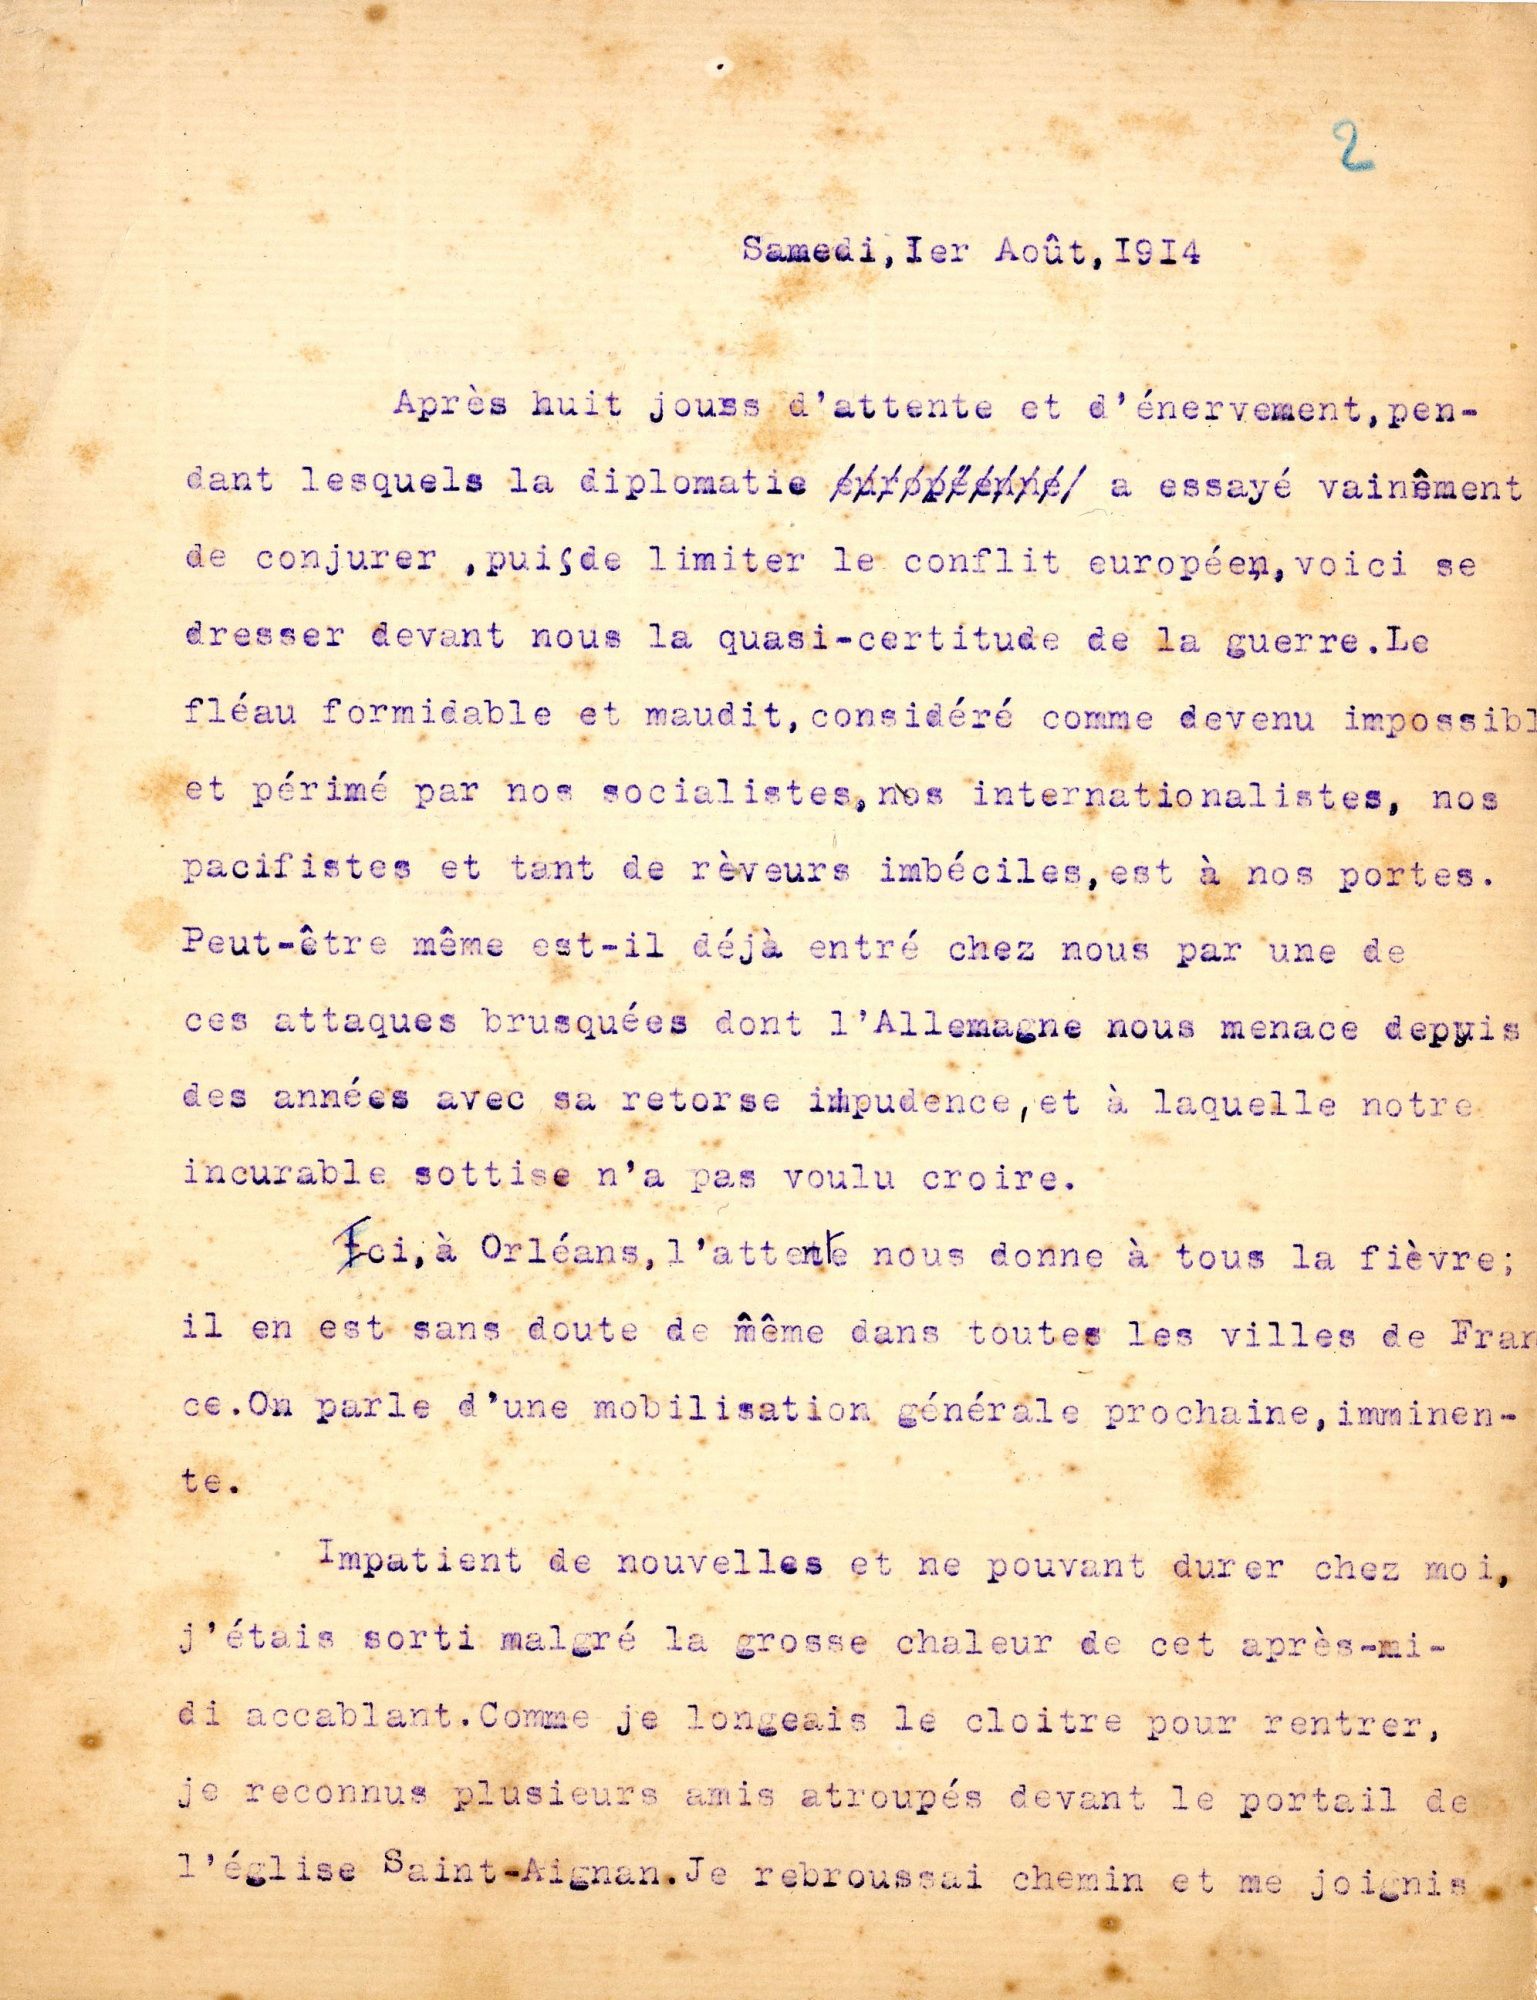 2
Samedi,Ier Août,I9I4
Après huit jours d'attente et d'énervement,pen-
dant lesquels la diplomatie européenne a essayé vainêment
de conjurer ,puis de limiter le conflit européen,voici se
dresser devant nous la quasi-certitude de la guerre.Le
fléau formidable et maudit,considéré comme devenu impossibl
et périmé par nos socialistes,nos internationalistes, nos
pacifistes et tant de rèveurs imbéciles,est à nos portes.
Peut-être même est-il déjà entré chez nous par une de
ces attaques brusquées dont l'Allemagne nous menace depuis
des années avec sa retorse impudence,et à laquelle notre
incurable sottise n'a pas voulu croire.
Ici,à Orléans,l'attente nous donne à tous la fièvre;
il en est sans doute de même dans toutes les villes de Fran
ce.On parle d'une mobilisation générale prochaine,imminen-
te.
Impatient de nouvelles et ne pouvant durer chez moi,
j'étais sorti malgré la grosse chaleur de cet après-mi-
di accablant.Comme je longeais le cloitre pour rentrer,
je reconnus plusieurs amis atroupés devant le portail de
l'église Saint-Aignan.Je rebroussai chemin et me joignis